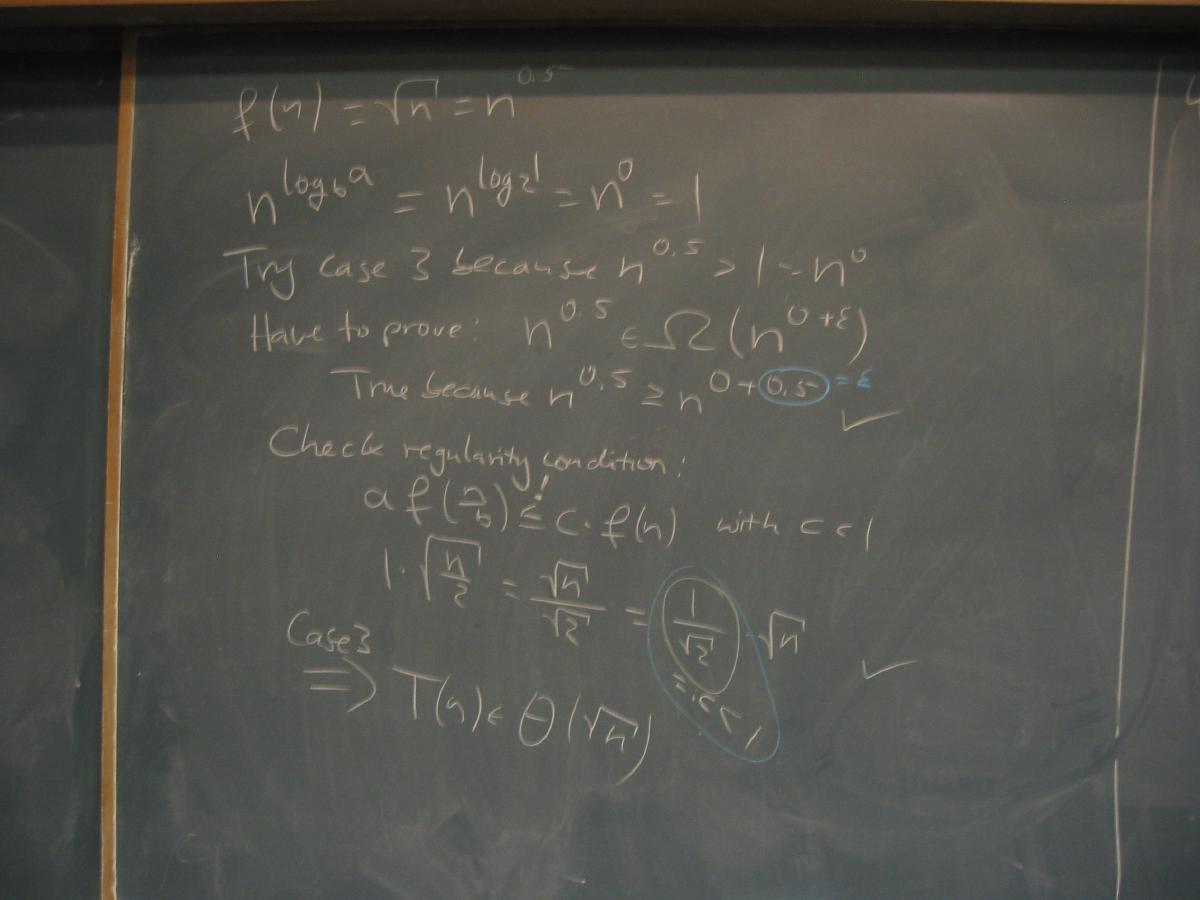 f(n) = √n = n^0.5
n^(log_b a) = n^(log_2 1) = n^0 = 1
Try case 3 because n^0.5 > 1 = n^0
Have to prove: n^0.5 ∈ Ω(n^(0+ε))
True because n^0.5 ≥ n^(0+0.5) = ε ✓
Check regularity condition:
a f(n/b) ≤! c · f(n) with c < 1
1 · √(n/2) = √n/√2 = 1/√2 · √n ✓
= c < 1
Case 3
⇒ T(n) ∈ Θ(√n)